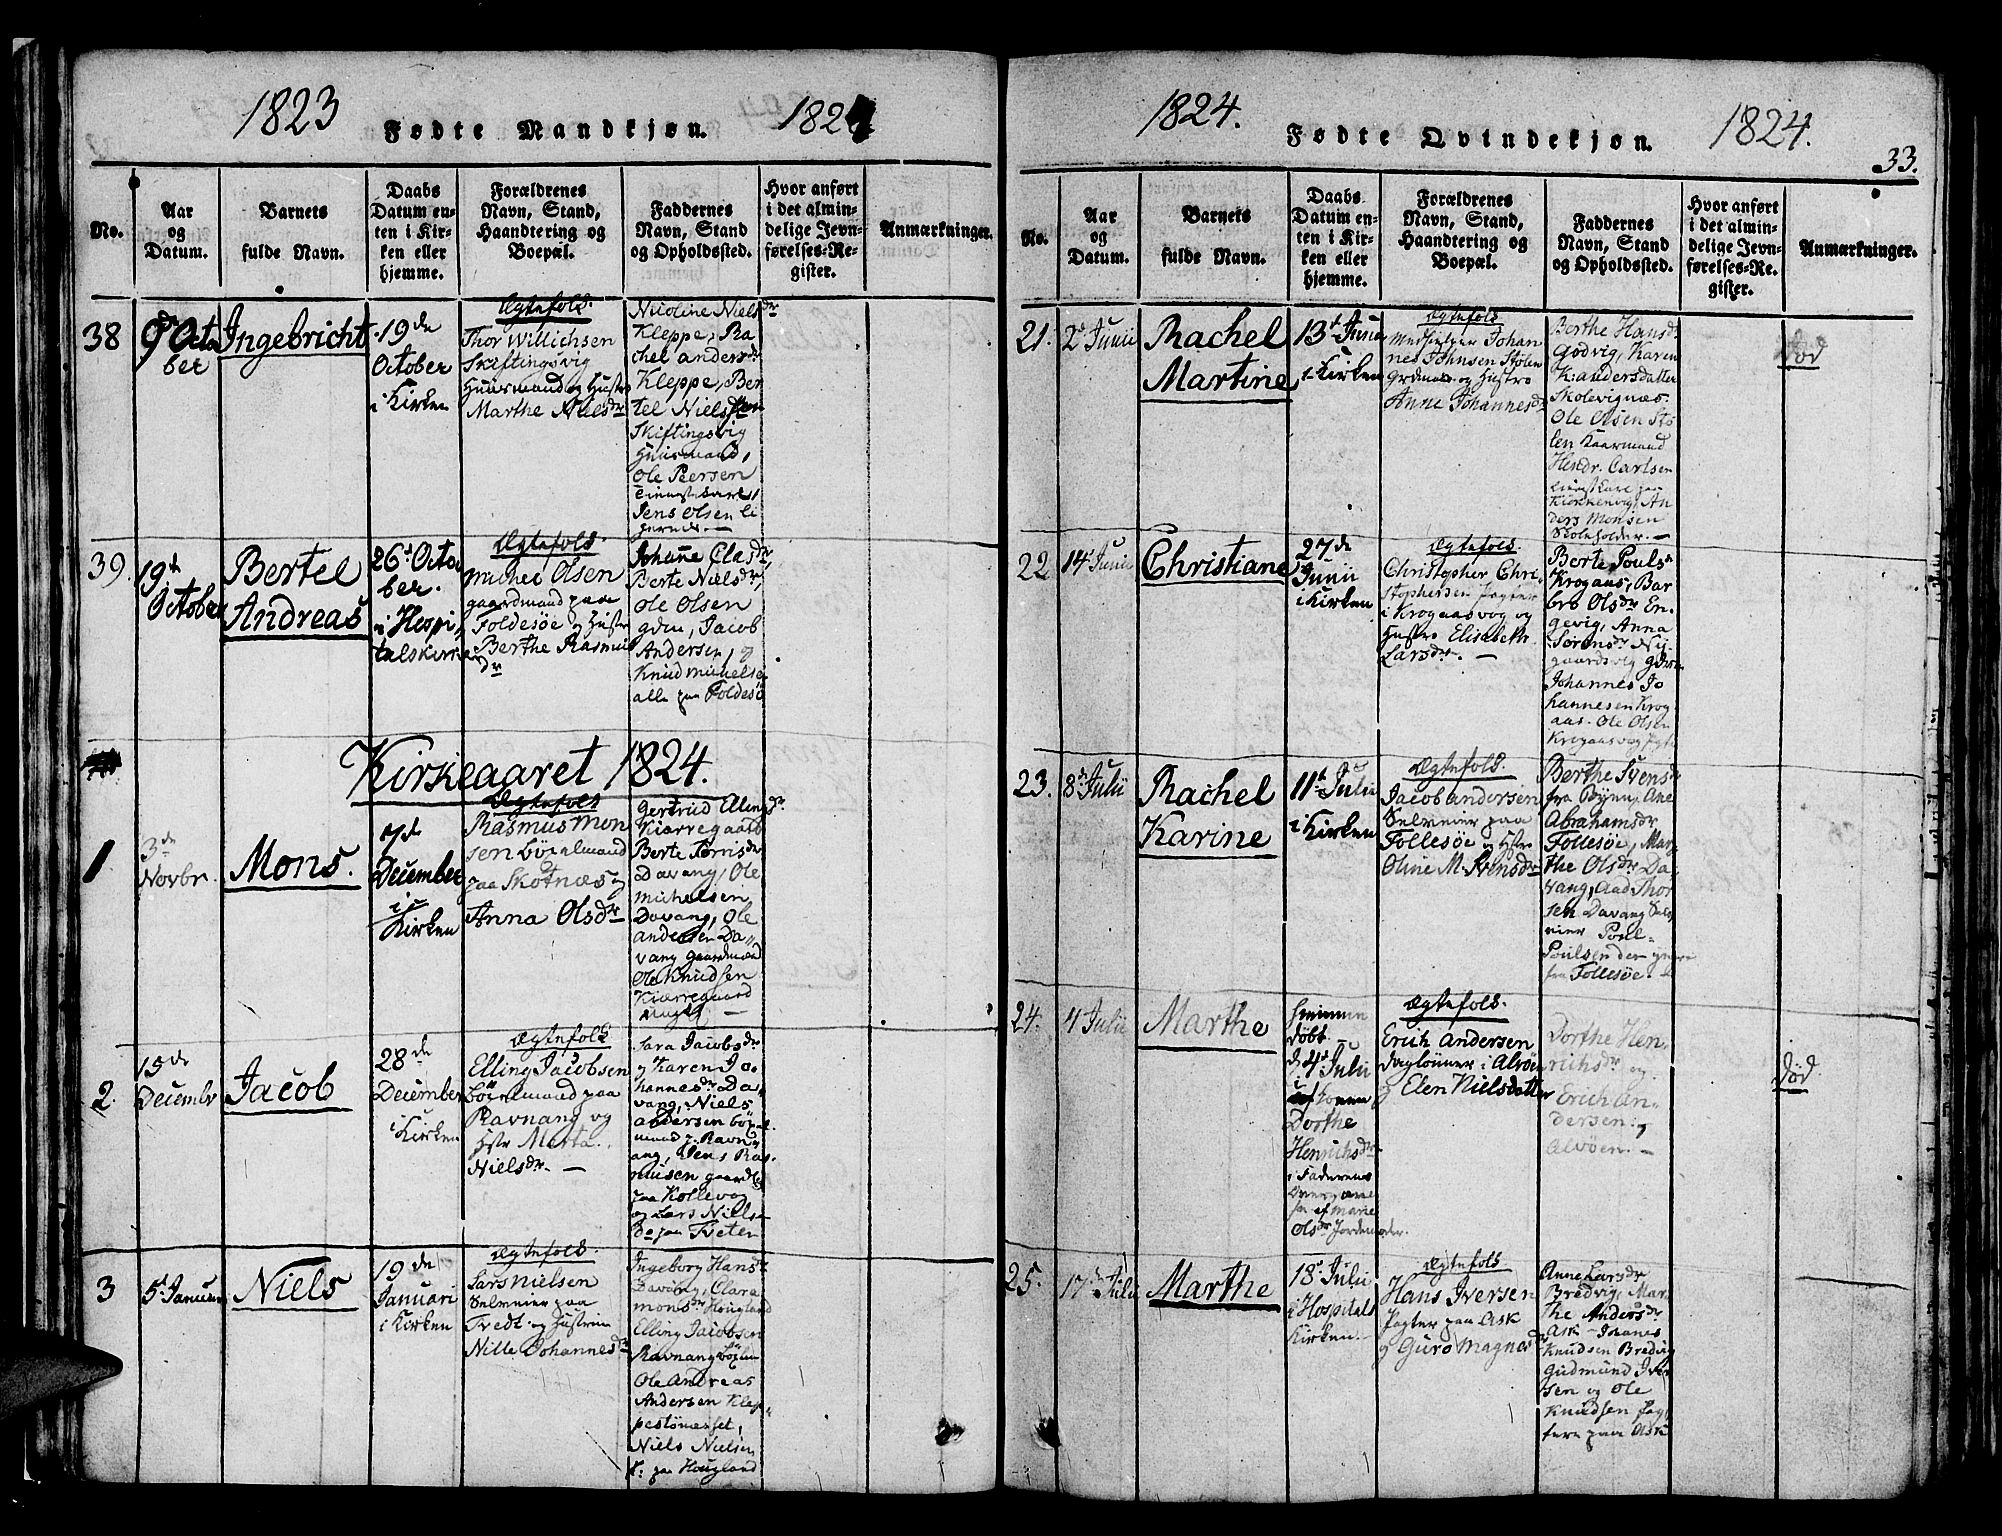 1823
Fødte Mandkjøn.
1824
No.
Aar
og
Datum.
Barnets
fulde Navn.
Daabs
Datum en-
ten i Kir-
ken eller
hjemme.
Forældrenes
Navn, Stand,
Haandtering og
Boepæl.
Faddernes
Navn, Stand
og Opholdssted.
Hvor anført
i det almin-
delige Jevn-
førelses-Re-
gister.
Anmærkninger.
38
9de Octo
ber
Ingebricht
19de
October
i Kirken
Ægtefolk.
Thor Willichsen
Skiftingsvig
Huusmand og Hustro
Marthe Nielsdr
Nicoline Nielsdr
Kleppe, Ra
chel andersdr
Kleppe, Ber
tel Nielssen
Skiftingsvig
Huusmand,
Ole Persen
Jens Olsen li
39.
19de
October
Bertel
Andreas
26de Octo
ber.
i Hospi
talskirken
Ægtefolk.
Michel Olsen
gaardmand paa
Foldesøe og Hustro
Berthe Rasmus
dr
Johanne Clasdr,
Berte Nielsdr,
Ole Olsen
Jacob
Andersen, og
Knud Michelsen
alle paa Foldesø
Kirkeaaret 1824.
1
3de
Novbr.
Mons.
7de
December
i
Kirken
Ægtefolk
Rasmus Mon
sen Bøxelmand
paa Skotnæs og
Anna Olsdr
Gertrud Ellingsdr
Kiærregaard
Berte Torrisdr
Davang, Ole
Michelsen
Davang, Ole
andersen Da-
vang gaardmænd
Ole Knudsen
Kiærregaard
2.
15de
Decembr
Jacob
28de
December
i Kirken
Ægtefolk
Elling Jacobsen
Bøxelmand paa
Ravnang og
Hstr Marta
Nielsdr. —
Sara Jacobsdr
og Karen Jo
hannesdr Da-
vang, Niels
andersen Bøxel
mand p. Ravn-
ang, Jens Ras
musen gaardm
paa Kollevog
og Lars Nielsen
do paa Tveten
3
5. Januar
Niels
19de
Januari
i Kirken
Ægtefolk.
Lars Nielsen
Selveier paa
Tvedt og Hustrue
Nille Johannesdr
Ingeborg Hansdr
Davang, Clara
Monsdr Hougland
Elling Jacobsen
Ravnang Bøxlm
Ole Andreas
Andersen Klep-
pestømæsset,
Niels Nielsen
paa Hougland
1824.
Fødte Qvindekjøn.
1824.
33.
No.
Aar
og
Datum.
Barnets
fulde Navn.
Daabs
Datum en-
ten i Kir-
ken eller
hjemme.
Forældrenes
Navn, Stand,
Haandtering og
Boepæl.
Faddernes
Navn, Stand
og Opholdssted.
Hvor anført
i det almin-
delige Jevn-
førelses-Re-
gister.
Anmærkninger.
21.
2d Junii
Rachel
Martine
13de Junii
i Kirken
Ægtefolk
Medhielper Johan
nes Johnsen Stolen
Grdmand og Hustro
Anne Johannesdr
Berthe Hansdr
Godvig, Karen
K: andersdatter
Skolevignæs.
Ole Olsen Sto
len Kaarmand
Hendr. Carlsen
Kirkevig, An
ders Monsen
Skoleholder. —
død
22
14de Junii
Christiane
27de
Junii
i Kirken
Ægtefolk.
Christopher Chri-
stophersen Jægter
i Krogaasvog og
Hustro Elisabeth
Larsdr. —
Berte Poulsdr
Krogaas, Bar
bro Olsdr En-
gevig, Anna
Sørensdr Ny-
gaardsvig
Johannes Jo
hannesen Krog
aas. Ole Olsen
Krogaasvog
23.
8de Julii
Rachel
Karine
11te Julii
i Kirken
Ægtefolk.
Jacob andersen
Selveier paa
Follesøe og Hstr
Oline M. Svensdr
Berthe Svensdr
fra Byen, Ane
Abrahamsdr
Follesøe, Mar
the Olsdr Da-
vang, Aad Thor
sen Davang Selv
eier Poul
Poulsen den yngre
fra Follesøe. —
24.
4 Julii
Marthe
Hiemme
døbt
d. 4de Julii
i
af Konen
Dorthe
Henrichsdr
i Faderens
af Marie
Olsdr Jordemoder.
Ægtefolk.
Erich Andersen
daglønner i Alvøen
og Elen Nielsdatter
Dorthe Hen-
richsdr og
Erich An-
dersen. i
Alvøen. —
død
25.
17de Julii
Marthe
18de Julii
i Hospitals
Kirken. —
Ægtefolk
Hans Iversen
Jægter paa Ask
og Guro Magnesdr
Anne Larsdr
Bredvig, Mar
the Andersdr
Ask - Johanes
Knudsen Bredvig
Gudmund Iver
sen og Ole
Knudsen Jæg-
tere paa Ask